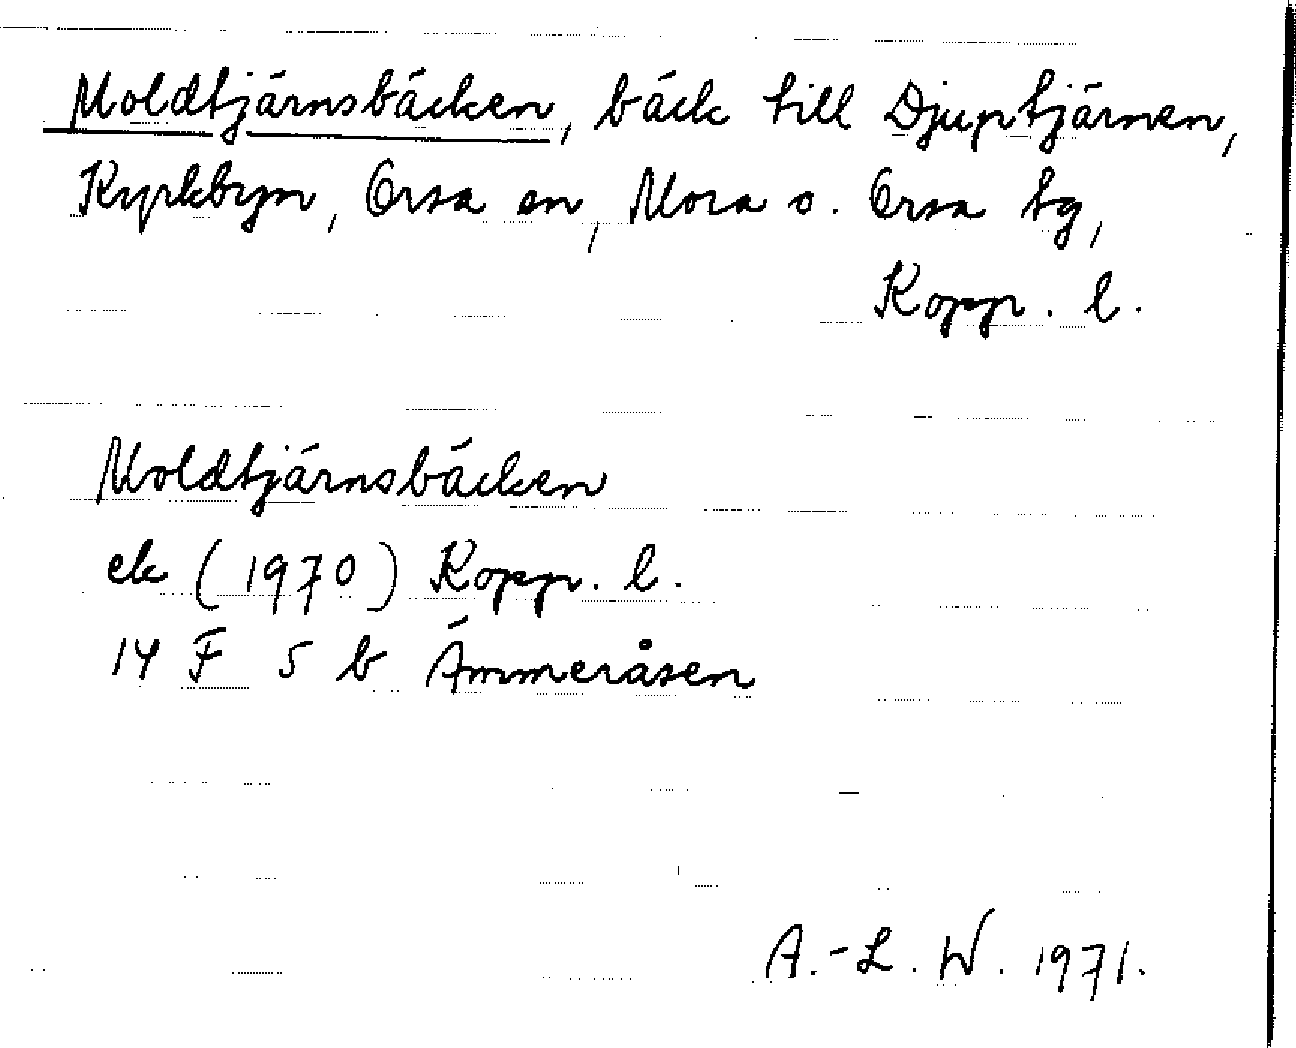 Moldtjärnsbäcken, bäck till Djuptjärnen,
Kyrkbyn, Orsa sn, Mora o. Orsa tg,
Kopp. l.
Moldtjärnsbäcken
ek (1970) Kopp. l.
14 F 5 b Ämmeråsen
A.-L. W. 1971.